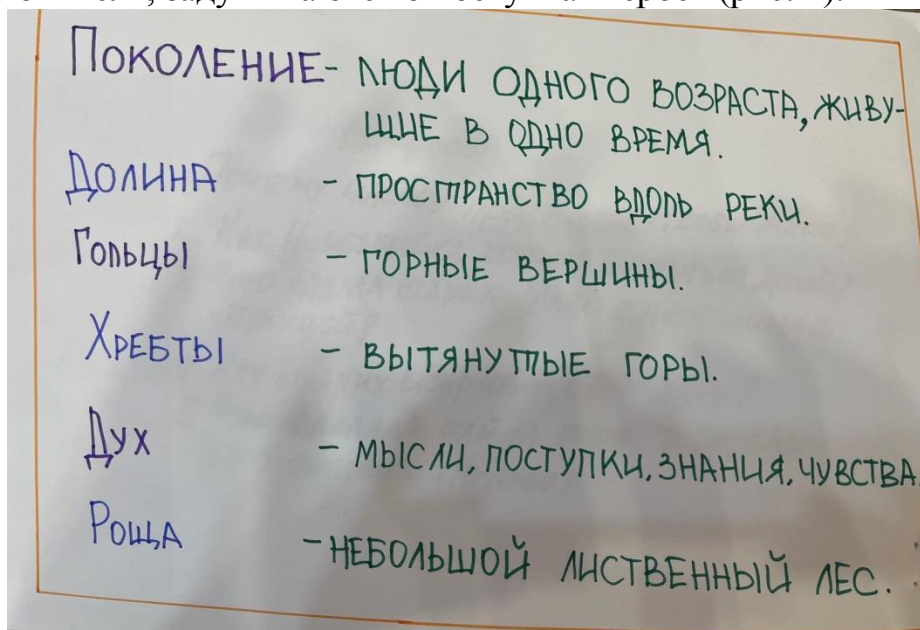 ПОКОЛЕНИЕ- ЛЮДИ ОДНОГО ВОЗРАСТА, ЖИВУ-
ЩИЕ В ОДНО ВРЕМЯ.
ДОЛИНА - ПРОСТРАНСТВО ВДОЛЬ РЕКИ.
ГОЛЬЦЫ - ГОРНЫЕ ВЕРШИНЫ.
ХРЕБТЫ - ВЫТЯНУТЫЕ ГОРЫ.
ДУХ - МЫСЛИ, ПОСТУПКИ, ЗНАНИЯ, ЧУВСТВА.
РОЩА - НЕБОЛЬШОЙ ЛИСТВЕННЫЙ ЛЕС.